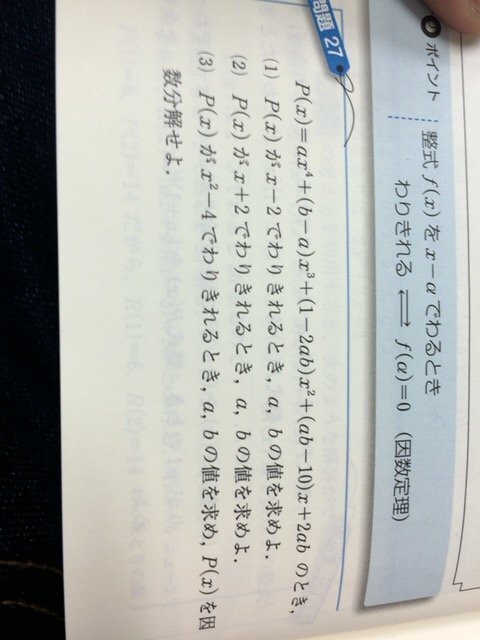 ポイント
整式 f(x) を x-α でわるとき
わりきれる ⇄ f(α)=0 (因数定理)
問題 27
P(x)=ax⁴+(b-a)x³+(1-2ab)x²+(ab-10)x+2ab のとき,
(1) P(x) が x-2 でわりきれるとき, a, b の値を求めよ.
(2) P(x) が x+2 でわりきれるとき, a, b の値を求めよ.
(3) P(x) が x²-4 でわりきれるとき, a, b の値を求め, P(x) を因
数分解せよ.